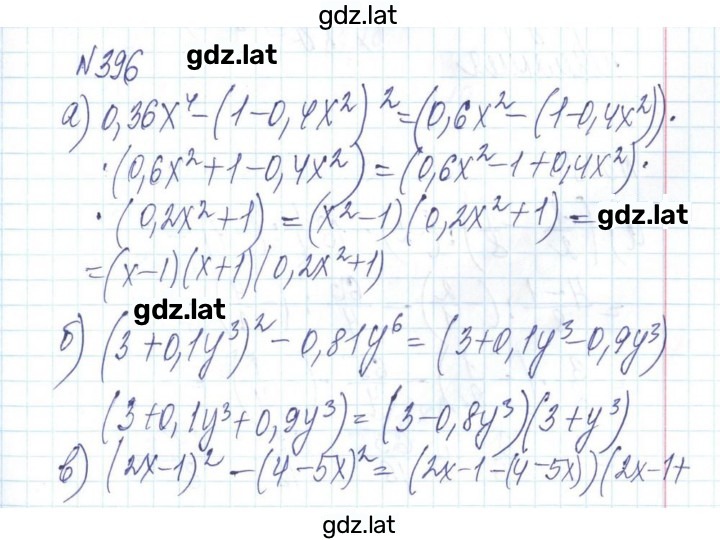 gdz.lat
№396 gdz.lat
а) 0,36x⁴-(1-0,4x²)²=(0,6x²-(1-0,4x²))·
·(0,6x²+1-0,4x²)=(0,6x²-1+0,4x²)·
·(0,2x²+1)=(x²-1)(0,2x²+1)= gdz.lat
=(x-1)(x+1)(0,2x²+1)
gdz.lat
б) (3+0,1y³)²-0,81y⁶=(3+0,1y³-0,9y³)
(3+0,1y³+0,9y³)=(3-0,8y³)(3+y³)
в) (2x-1)²-(4-5x)²=(2x-1-(4-5x))(2x-1+
gdz.lat